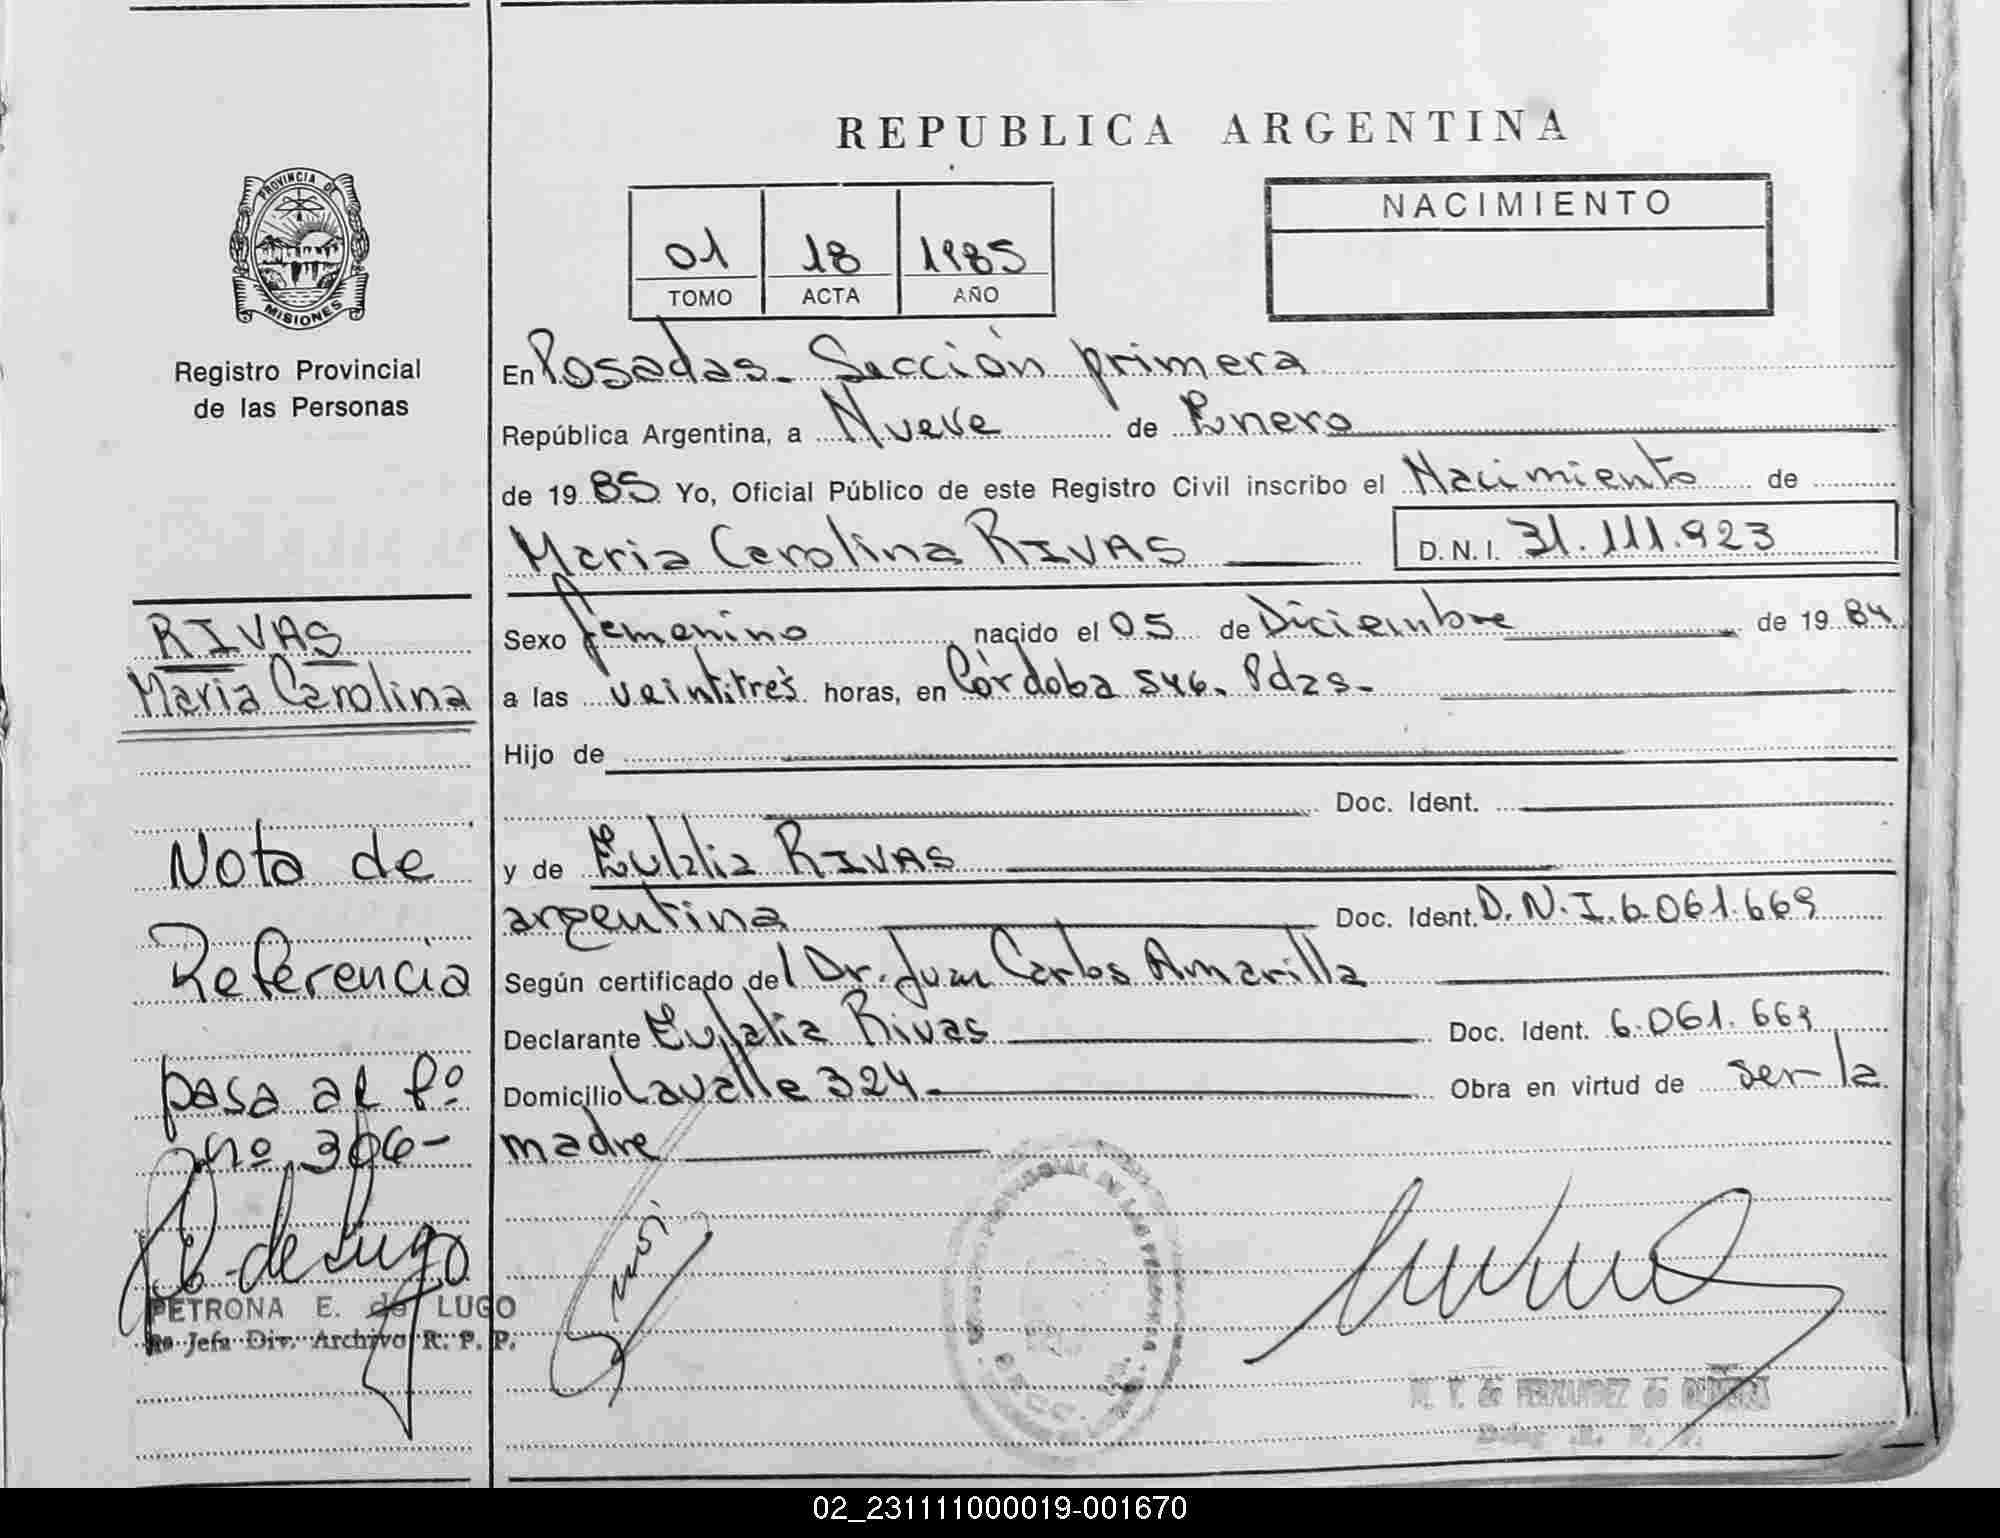 REPUBLICA ARGENTINA
PROVINCIA DE
MISIONES
Registro Provincial
de las Personas
01 18 1985
TOMO ACTA AÑO
NACIMIENTO
En Posadas. Sección primera
República Argentina, a Nueve de Enero
de 1985 Yo, Oficial Público de este Registro Civil inscribo el Nacimiento de
Maria Carolina RIVAS D.N.I. 31.111.923
RIVAS
Maria Carolina
Sexo femenino nacido el 05 de Diciembre de 1984
a las veintitrés horas, en Córdoba 546. Pdas.
Hijo de
Doc. Ident.
y de Eulalia RIVAS
argentina Doc. Ident. D.N.I. 6.061.669
Según certificado del Dr. Juan Carlos Amarilla
Declarante Eulalia Rivas Doc. Ident. 6.061.669
Domicilio Lavalle 324. Obra en virtud de ser la
madre
Nota de
Referencia
pasa al fº
nº 306-
E. de Lugo
PETRONA E. de LUGO
Jefa Div. Archivo R. P. P.
M. T. de FERNANDEZ de
02_231111000019-001670